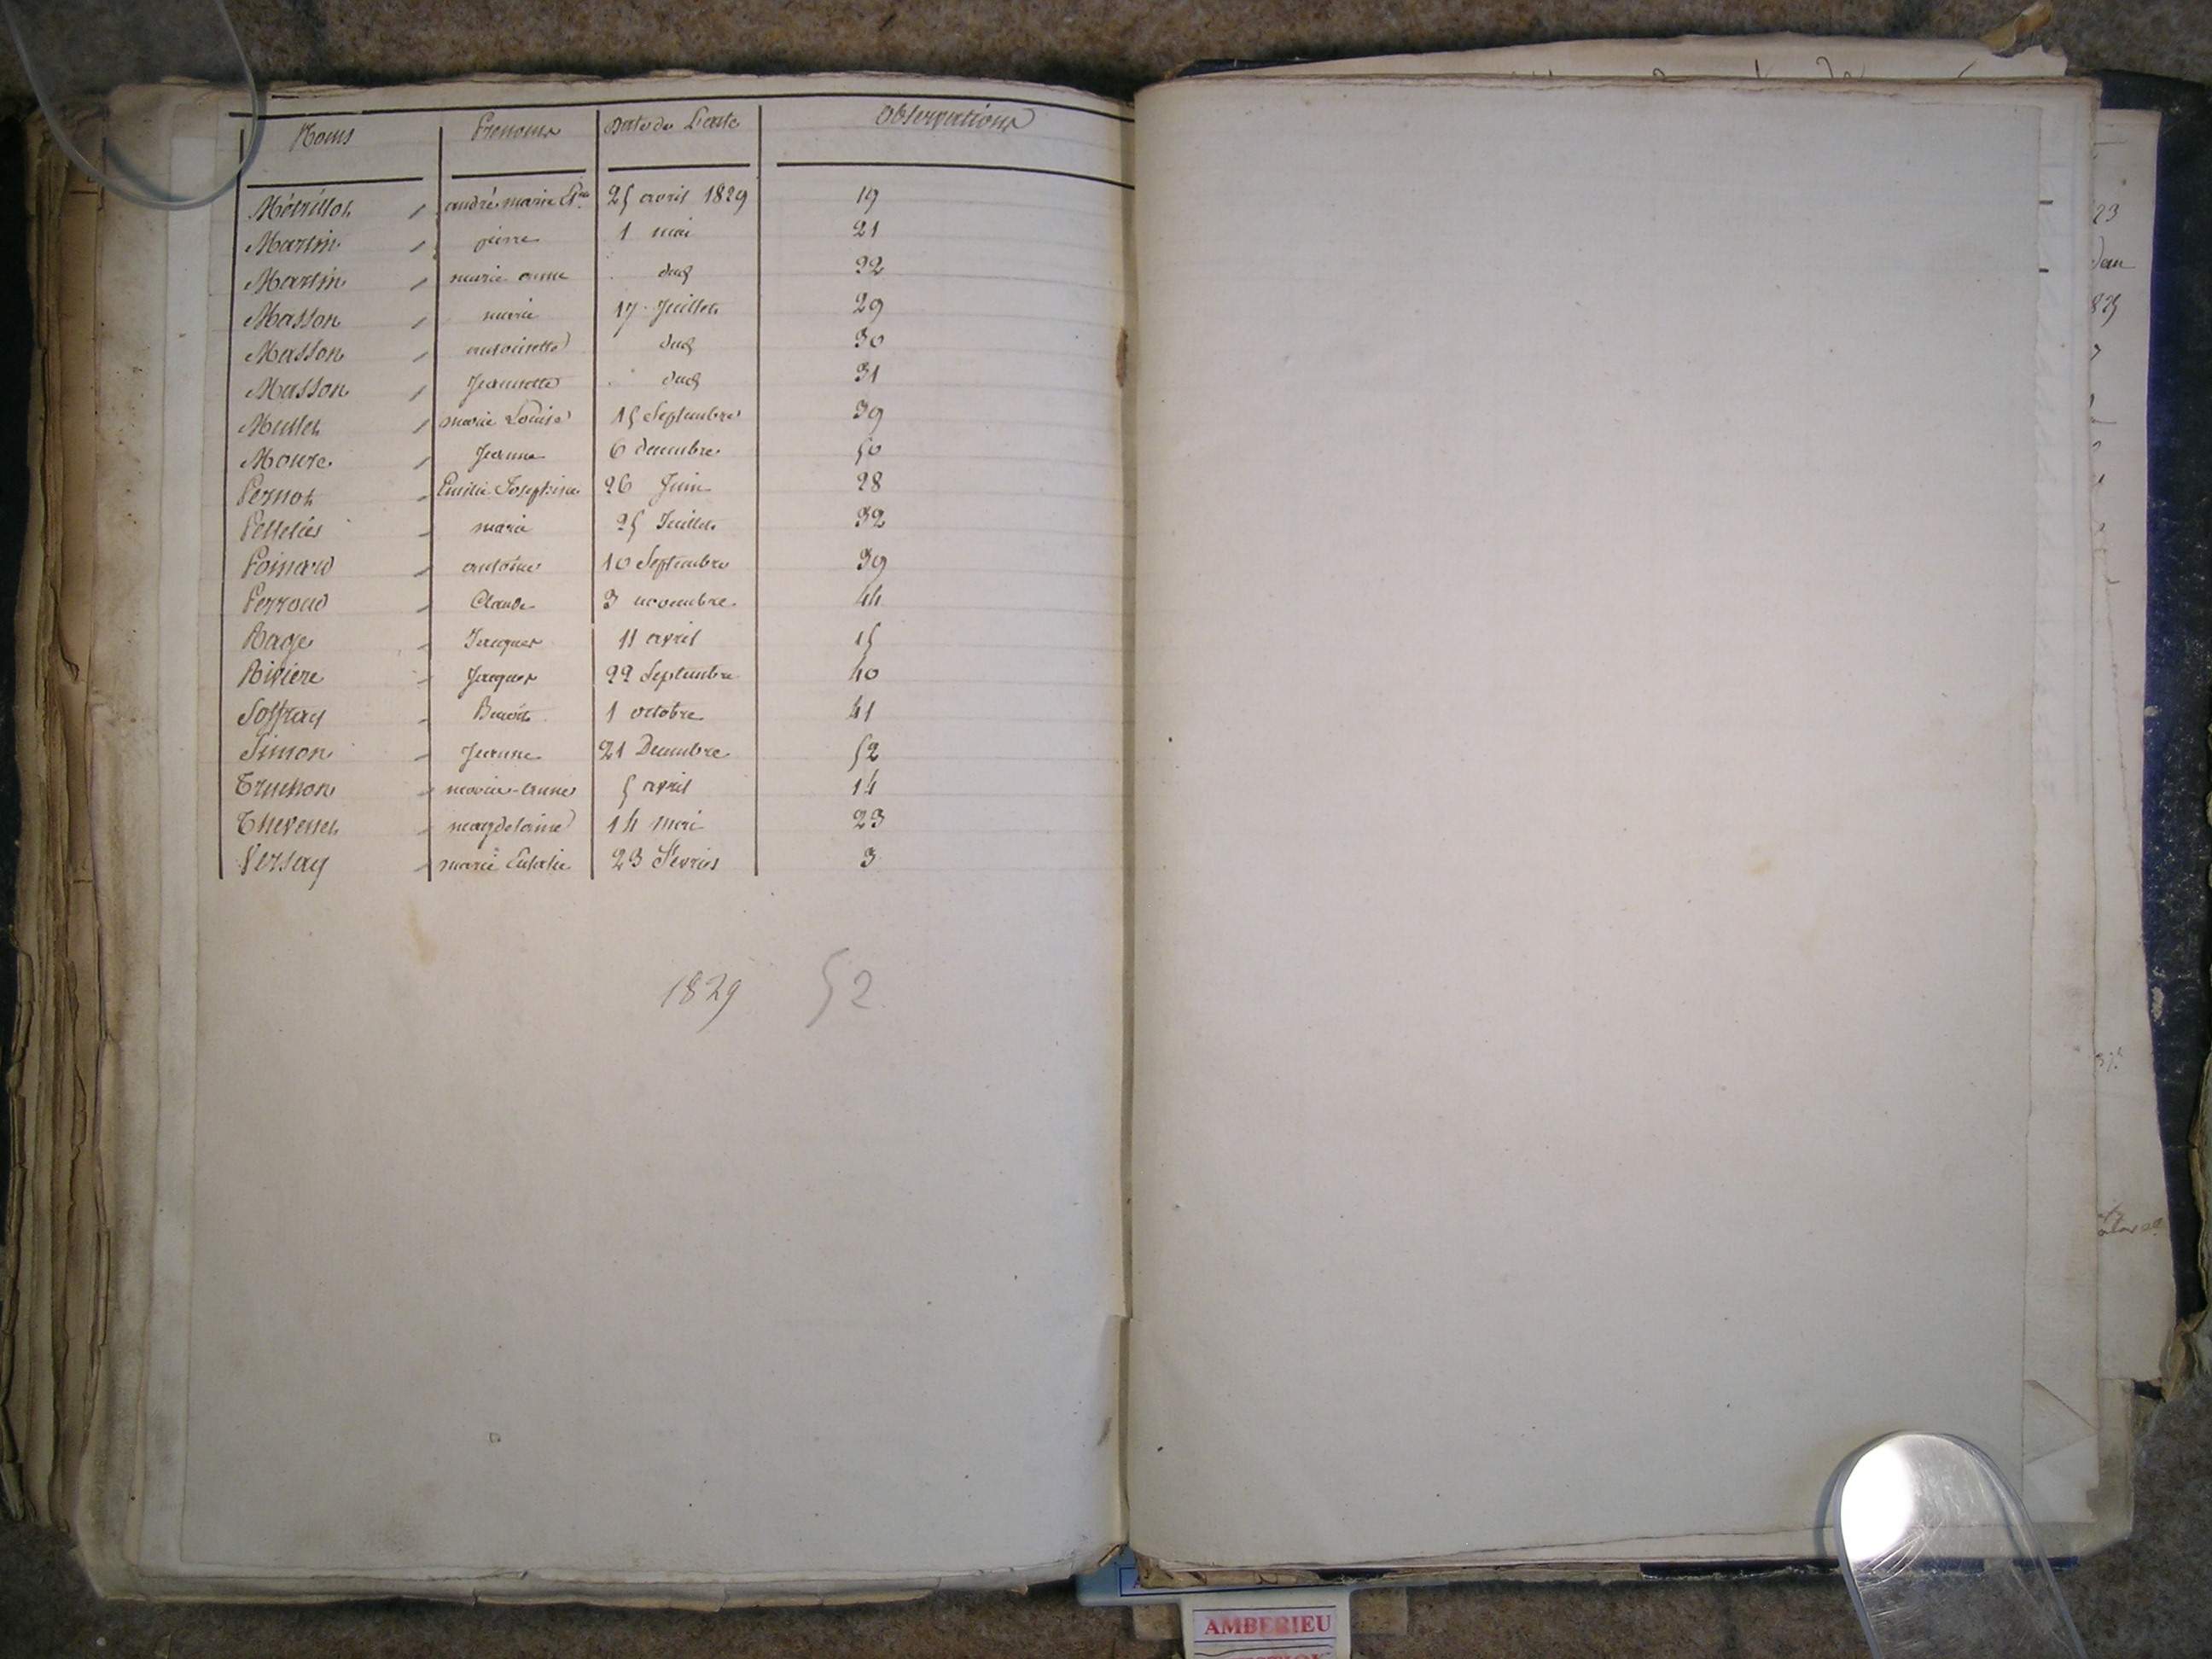 Noms Prenoms Date de L'acte Observations
Métrillot andré marie 25 avril 1829 19
Martin pierre 1 mai 21
Martin marie anne dud 22
Masson marie 17 Juillet 29
Masson antoinette dud 30
Masson Jeannette dud 31
Mullet marie Louise 15 Septembre 39
Moure Jeanne 6 decembre 50
Pernot Emilie Josephine 26 Juin 28
Pelletier marie 25 Juillet 32
Poinard antoine 10 Septembre 39
Perroud Claude 3 novembre 44
Rage Jacques 11 avril 15
Riviere Jacques 22 Septembre 40
Soffray Benoit 1 octobre 41
Simon Jeanne 21 Decembre 52
Truchon marie-anne 5 avril 14
Thevenet magdelaine 14 mai 23
Versay marie Eulalie 23 Fevrier 3
1829 52
AMBERIEU